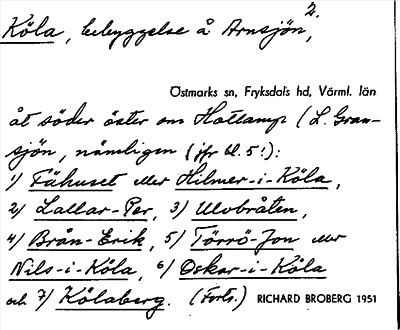 2.
Köla, bebyggelse å Arnsjön,
Östmarks sn, Fryksdals hd, Värml. län
åt söder öster om Hottamp (L. Gran-
sjön, nämligen (jfr bl. 5!):
1) Fähuset eller Hilmer-i-Köla,
2) Lallar-Per, 3) Ulvbråten,
4) Brån-Erik, 5) Törrö-Jon eller
Nils-i-Köla, 6) Oskar-i-Köla
och 7) Kölaberg. (Forts.) RICHARD BROBERG 1951